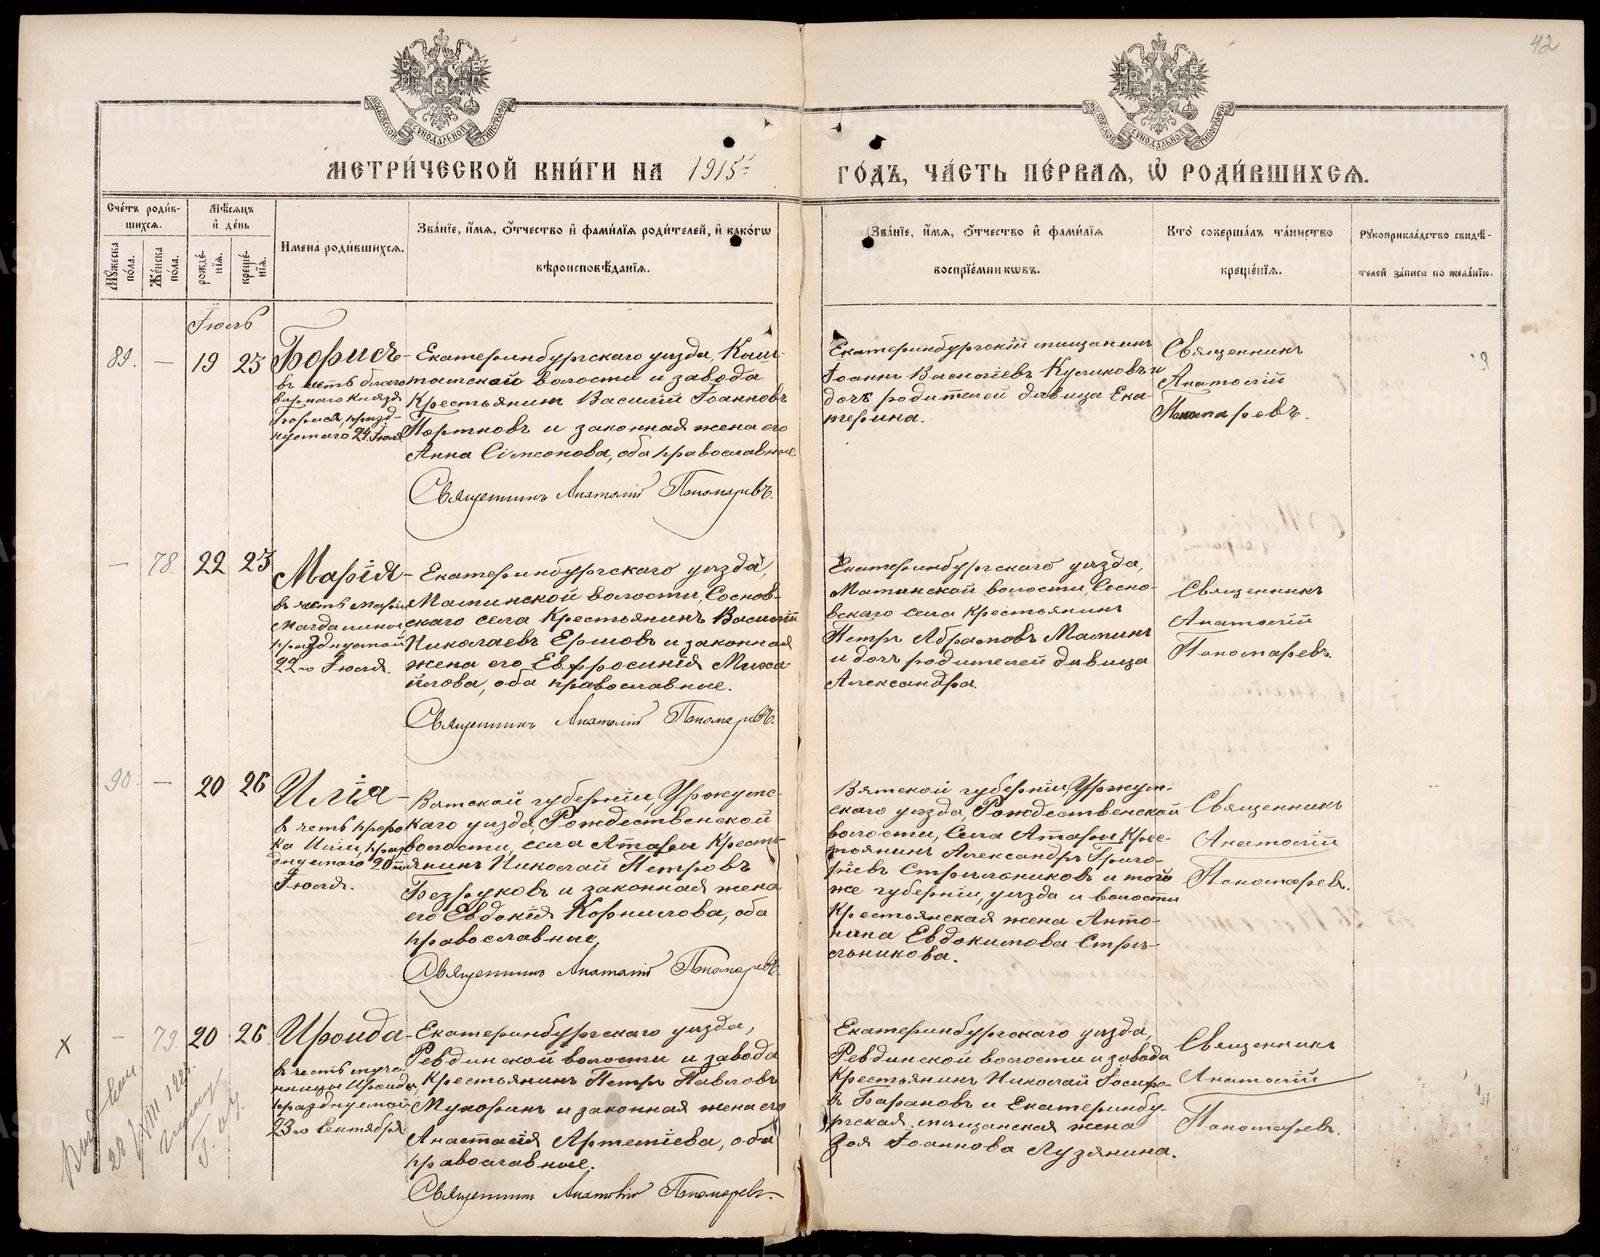 42
МОСКОВСКОЙ СѴНОДАЛЬНОЙ ТИПОГРАФІИ
МОСКОВСКОЙ СѴНОДАЛЬНОЙ ТИПОГРАФІИ
МЕТРИ́ЧЕСКОЙ КНИ́ГИ НА 1915 ГО́ДЪ, ЧА́СТЬ ПЕ́РВАЯ, Ѡ҆ РОДИ́ВШИХСЯ.
Сче́тъ роди́в-
шихся.
Му́жеска по́ла.
Же́нска по́ла.
Мѣ́сяцъ
и҆ де́нь
рожде́-
нїя.
креще́-
нїя.
Имена̀ роди́вшихся.
Зва́нїе, и҆́мя, ѻ҆́тчество и҆ фами́лїя роди́телей, и҆ како́гѡ
вѣроисповѣ́данїя.
Зва́нїе, и҆́мя, ѻ҆́тчество и҆ фами́лїя
воспрїе́мникѡвъ.
Кто̀ соверша́лъ та́инство
креще́нїя.
Рꙋкоприкла́дство свидѣ́-
телей за́писи по жела́нїю.
Іюль
89. — 19 25
Борисъ
въ честь благо
вѣрнаго князя
Бориса, празд-
нуемаго 24 Іюля
Екатеринбургскаго уѣзда,
волости и завода
Крестьянинъ Василій Іоанновъ
Портновъ и законная жена его
Анна Сімеонова, оба православные
Священникъ Анатолій Пономаревъ.
Екатеринбургскій мѣщанинъ
Іоаннъ Васильевъ Куликовъ и
дочь родителей дѣвица Ека-
терина.
Священникъ
Анатолій
Пономаревъ.
— 78. 22 23
Марія
въ честь Маріи
Магдалины
празднуемой
22го Іюля.
Екатеринбургскаго уѣзда,
Маминской волости, Соснов-
скаго села Крестьянинъ Василій
Николаевъ Ершовъ и законная
жена его Евфросинія Миха-
йлова, оба православные.
Священникъ Анатолій Пономаревъ.
Екатеринбургскаго уѣзда,
Маминской волости, Сосно-
вскаго села Крестьянинъ
Петръ Абрамовъ Маминъ
и дочь родителей дѣвица
Александра.
Священникъ
Анатолій
Пономаревъ.
90. — 20 26
Илія
въ честь проро
ка Иліи, праз
днуемаго 20го
Іюля.
Вятской губерніи, Уржумс-
каго уѣзда, Рождественской
волости, села Атары Кресть-
янинъ Николай Петровъ
Безруковъ и законная жена
его Евдокія Корнилова, оба
православные.
Священникъ Анатолій Пономаревъ
Вятской губерніи, Уржум-
скаго уѣзда, Рождественской
волости, села Атары Крес-
тьянинъ Александръ Григо-
рьевъ Стрѣльниковъ и того
же губерніи, уѣзда и волости
Крестьянская жена Анто-
нина Евдокимова Стрѣ-
льникова.
Священникъ
Анатолій
Пономаревъ.
х — 79. 20 26
Ираида
въ честь муче-
ницы Ираиды,
празднуемой
23го Сентября.
Екатеринбургскаго уѣзда,
Ревдинской волости и завода
Крестьянинъ Петръ Павловъ
Мухоринъ и законная жена его
Анастасія Артеміева, оба
православные.
Священникъ Анатолій Пономаревъ.
Екатеринбургскаго уѣзда,
Ревдинской волости и завода
Крестьянинъ Николай
Барановъ и Екатеринбу-
ргская мѣщанская жена
Зоя Іоаннова Лузянина.
Священникъ
Анатолій
Пономаревъ.